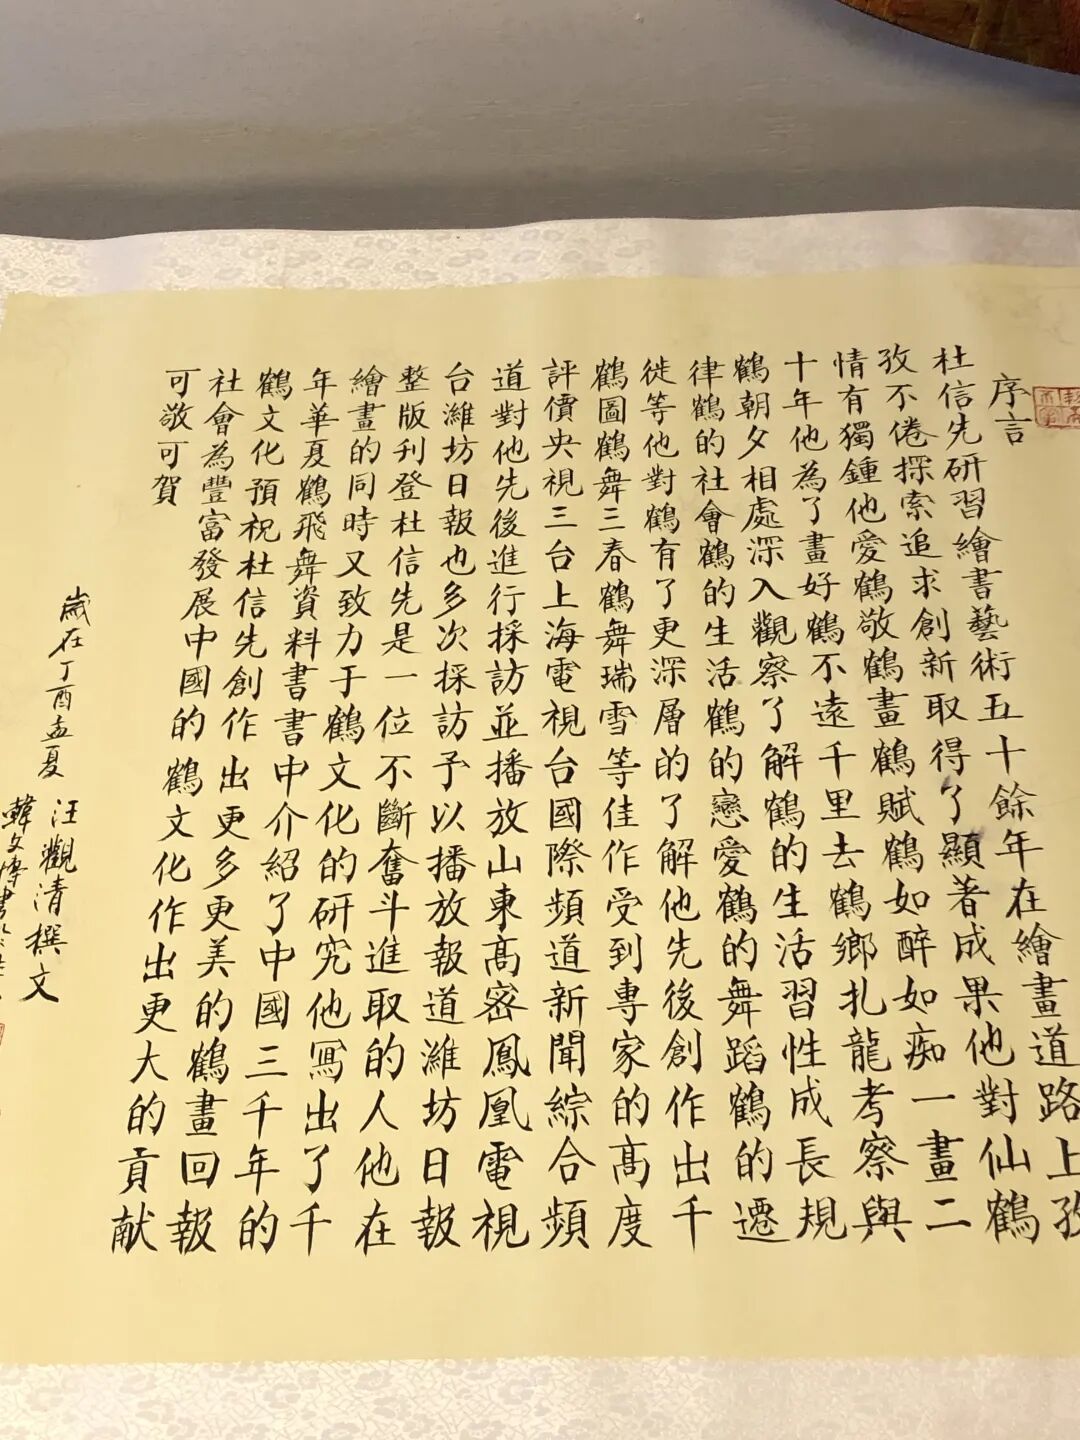 序言
杜信先研習繪書藝術五十餘年在繪畫道路上孜
孜不倦探索追求創新取得了顯著成果他對仙鶴
情有獨鍾他愛鶴敬鶴畫鶴賦鶴如醉如痴一畫二
十年他為了畫好鶴不遠千里去鶴鄉扎龍考察與
鶴朝夕相處深入觀察了解鶴的生活習性成長規
律鶴的社會鶴的生活鶴的戀愛鶴的舞蹈鶴的遷
徙等他對鶴有了更深層的了解他先後創作出千
鶴圖鶴舞三春鶴舞瑞雪等佳作受到專家的髙度
評價央視三台上海電視台國際頻道新聞綜合頻
道對他先後進行採訪並播放山東髙密鳳凰電視
台濰坊日報也多次採訪予以播放報道濰坊日報
整版刊登杜信先是一位不斷奮斗進取的人他在
繪畫的同時又致力于鶴文化的研究他寫出了千
年華夏鶴飛舞資料書書中介紹了中國三千年的
鶴文化預祝杜信先創作出更多更美的鶴畫回報
社會為豐富發展中國的鶴文化作出更大的貢献
可敬可賀
歲在丁酉孟夏 汪觀清撰文
韓文博書